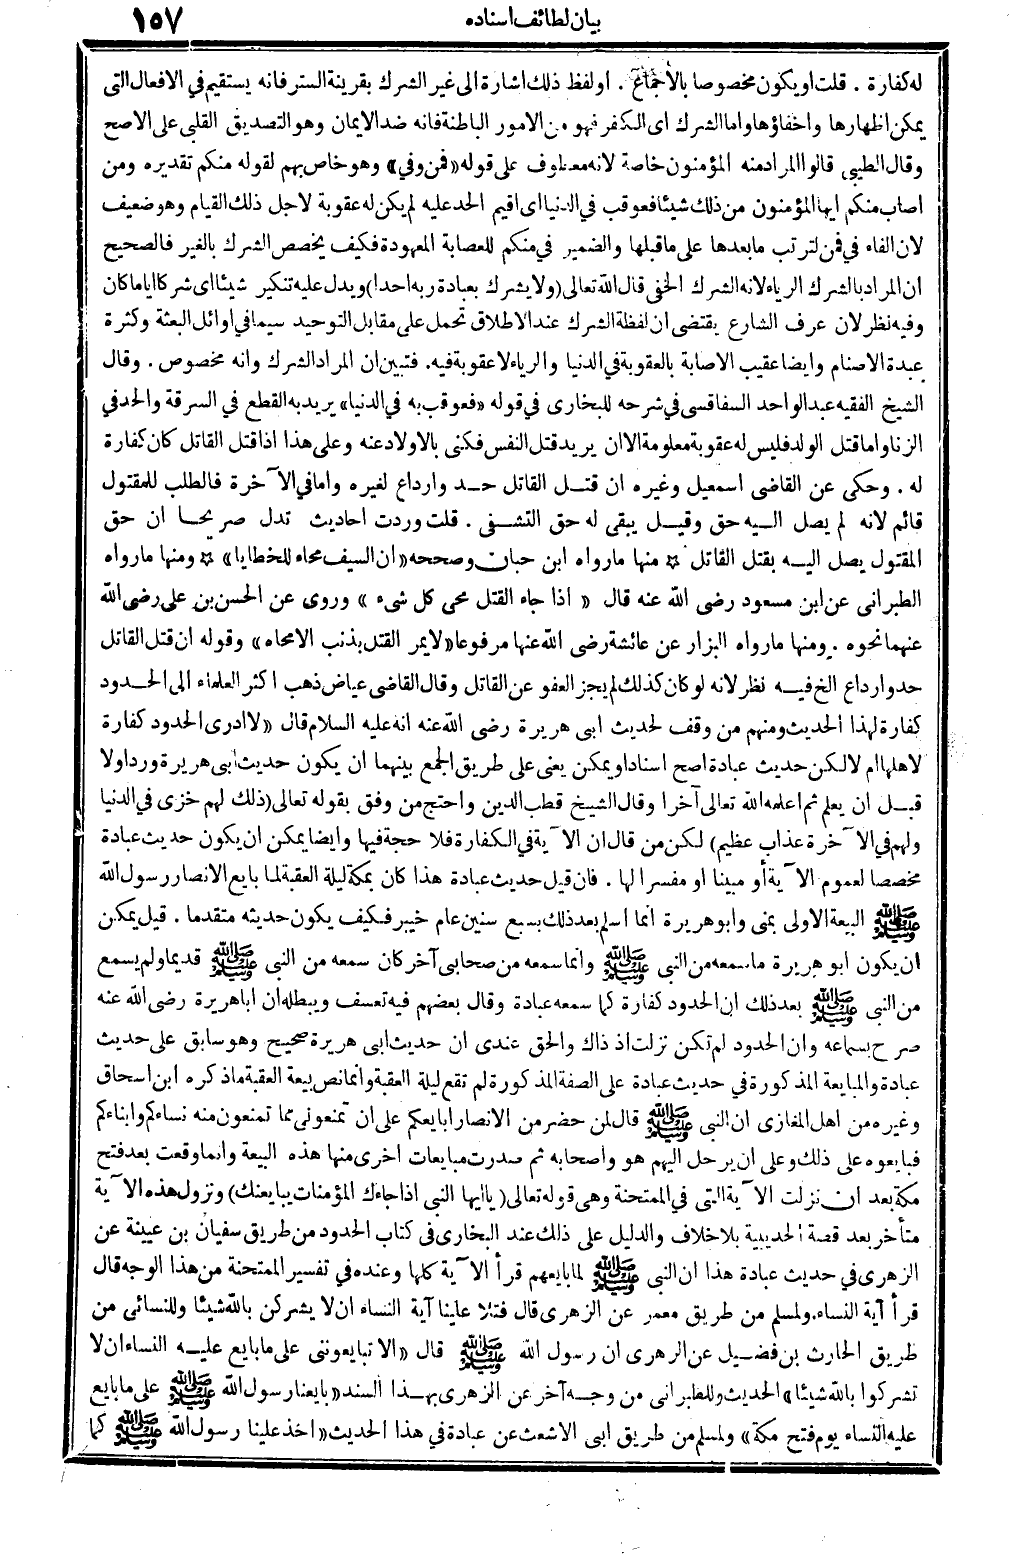 بيان لطائف اسناده ١٥٧
له كفارة . قلت او يكون مخصوصا بالأجماع . او لفظ ذلك اشارة الى غير الشرك بقرينة الستر فانه يستقيم في الافعال التى
يمكن اظهارها واخفاؤها واما الشرك اى الكفر فهو من الامور الباطنة فانه ضد الايمان وهو التصديق القلبى على الاصح
وقال الطيبى قالوا المراد منه المؤمنون خاصة لانه معطوف على قوله «فمن وفى» وهو خاص بهم لقوله منكم تقديره ومن
اصاب منكم ايها المؤمنون من ذلك شيئا فعوقب في الدنيا اى اقيم الحد عليه لم يكن له عقوبة لاجل ذلك القيام وهو ضعيف
لان الفاء في فمن لترتب ما بعدها على ما قبلها والضمير في منكم للعصابة المعهودة فكيف يخصص الشرك بالغير فالصحيح
ان المراد بالشرك الرياء لانه الشرك الخفى قال الله تعالى (ولا يشرك بعبادة ربه احدا) ويدل عليه تنكير شيئا اى شركا ايا ما كان
وفيه نظر لان عرف الشارع يقتضى ان لفظة الشرك عند الاطلاق تحمل على مقابل التوحيد سيما في اوائل البعثة وكثرة
عبدة الاصنام وايضا عقيب الاصابة بالعقوبة في الدنيا والرياء لا عقوبة فيه. فتبين ان المراد الشرك وانه مخصوص . وقال
الشيخ الفقيه عبد الواحد السفاقسى في شرحه للبخارى في قوله «فعوقب به في الدنيا» يريد به القطع في السرقة والحد في
الزنا واما قتل الولد فليس له عقوبة معلومة الا ان يريد قتل النفس فكنى بالاولاد عنه وعلى هذا اذا قتل القاتل كان كفارة
له . وحكى عن القاضى اسمعيل وغيره ان قتـل القاتل حـد وارداع لغيره واما في الآخرة فالطلب للمقتول
قائم لانه لم يصل اليـه حق وقيـل يبقى له حق التشفى . قلت وردت احاديث تدل صريحـا ان حق
المقتول يصل اليـه بقتل القاتل ☆ منها ما رواه ابن حبان وصححه «ان السيف محاء للخطايا» ☆ ومنها ما رواه
الطبرانى عن ابن مسعود رضى الله عنه قال « اذا جاء القتل محى كل شىء » وروى عن الحسن بن على رضى الله
عنهما نحوه . ومنها ما رواه البزار عن عائشة رضى الله عنها مرفوعا «لا يمر القتل بذنب الا محاه» وقوله ان قتل القاتل
حد وارداع الخ فيـه نظر لانه لو كان كذلك لم يجز العفو عن القاتل وقال القاضى عياض ذهب اكثر العلماء الى الحـدود
كفارة لهذا الحديث ومنهم من وقف لحديث ابى هريرة رضى الله عنه انه عليه السلام قال «لا ادرى الحدود كفارة
لاهلها ام لا لكن حديث عبادة اصح اسنادا ويمكن يعنى على طريق الجمع بينهما ان يكون حديث ابى هريرة ورد اولا
قبـل ان يعلم ثم اعلمه الله تعالى آخرا وقال الشيخ قطب الدين واحتج من وفق بقوله تعالى (ذلك لهم خزى في الدنيا
ولهم في الآخرة عذاب عظيم) لكن من قال ان الآية في الكفارة فلا حجة فيها وايضا يمكن ان يكون حديث عبادة
مخصصا لعموم الآية أو مبينا او مفسرا لها . فان قيل حديث عبادة هذا كان بمكة ليلة العقبة لما بايع الانصار رسول الله
ﷺ البيعة الاولى بمنى وابو هريرة انما اسلم بعد ذلك بسبع سنين عام خيبر فكيف يكون حديثه متقدما . قيل يمكن
ان يكون ابو هريرة ما سمعه من النبى ﷺ وانما سمعه من صحابى آخر كان سمعه من النبى ﷺ قديما ولم يسمع
من النبى ﷺ بعد ذلك ان الحدود كفارة كما سمعه عبادة وقال بعضهم فيه تعسف ويبطله ان ابا هريرة رضى الله عنه
صرح بسماعه وان الحدود لم تكن نزلت اذ ذاك والحق عندى ان حديث ابى هريرة صحيح وهو سابق على حديث
عبادة والمبايعة المذكورة في حديث عبادة على الصفة المذكورة لم تقع ليلة العقبة وانما نص بيعة العقبة ما ذكره ابن اسحاق
وغيره من اهل المغازى ان النبى ﷺ قال لمن حضر من الانصار ابايعكم على ان تمنعونى مما تمنعون منه نساءكم وابناءكم
فبايعوه على ذلك وعلى ان يرحل اليهم هو واصحابه ثم صدرت مبايعات اخرى منها هذه البيعة وانما وقعت بعد فتح
مكة بعد ان نزلت الآية التى في الممتحنة وهى قوله تعالى (يا ايها النبى اذا جاءك المؤمنات يبايعنك) ونزول هذه الآية
متأخر بعد قصة الحديبية بلا خلاف والدليل على ذلك عند البخارى في كتاب الحدود من طريق سفيان بن عيينة عن
الزهرى في حديث عبادة هذا ان النبى ﷺ لما بايعهم قرأ الآية كلها وعنده في تفسير الممتحنة من هذا الوجه قال
قرأ آية النساء. ولمسلم من طريق معمر عن الزهرى قال فتلا علينا آية النساء ان لا يشركن بالله شيئا وللنسائى من
طريق الحارث بن فضـيل عن الزهرى ان رسول الله ﷺ قال «الا تبايعونى على ما بايع عليـه النساء ان لا
تشركوا بالله شيئا» الحديث وللطبرانى من وجـه آخر عن الزهرى بهـذا السند «بايعنا رسول الله ﷺ على ما بايع
عليه النساء يوم فتح مكة» ولمسلم من طريق ابى الاشعث عن عبادة في هذا الحديث «اخذ علينا رسول الله ﷺ كما